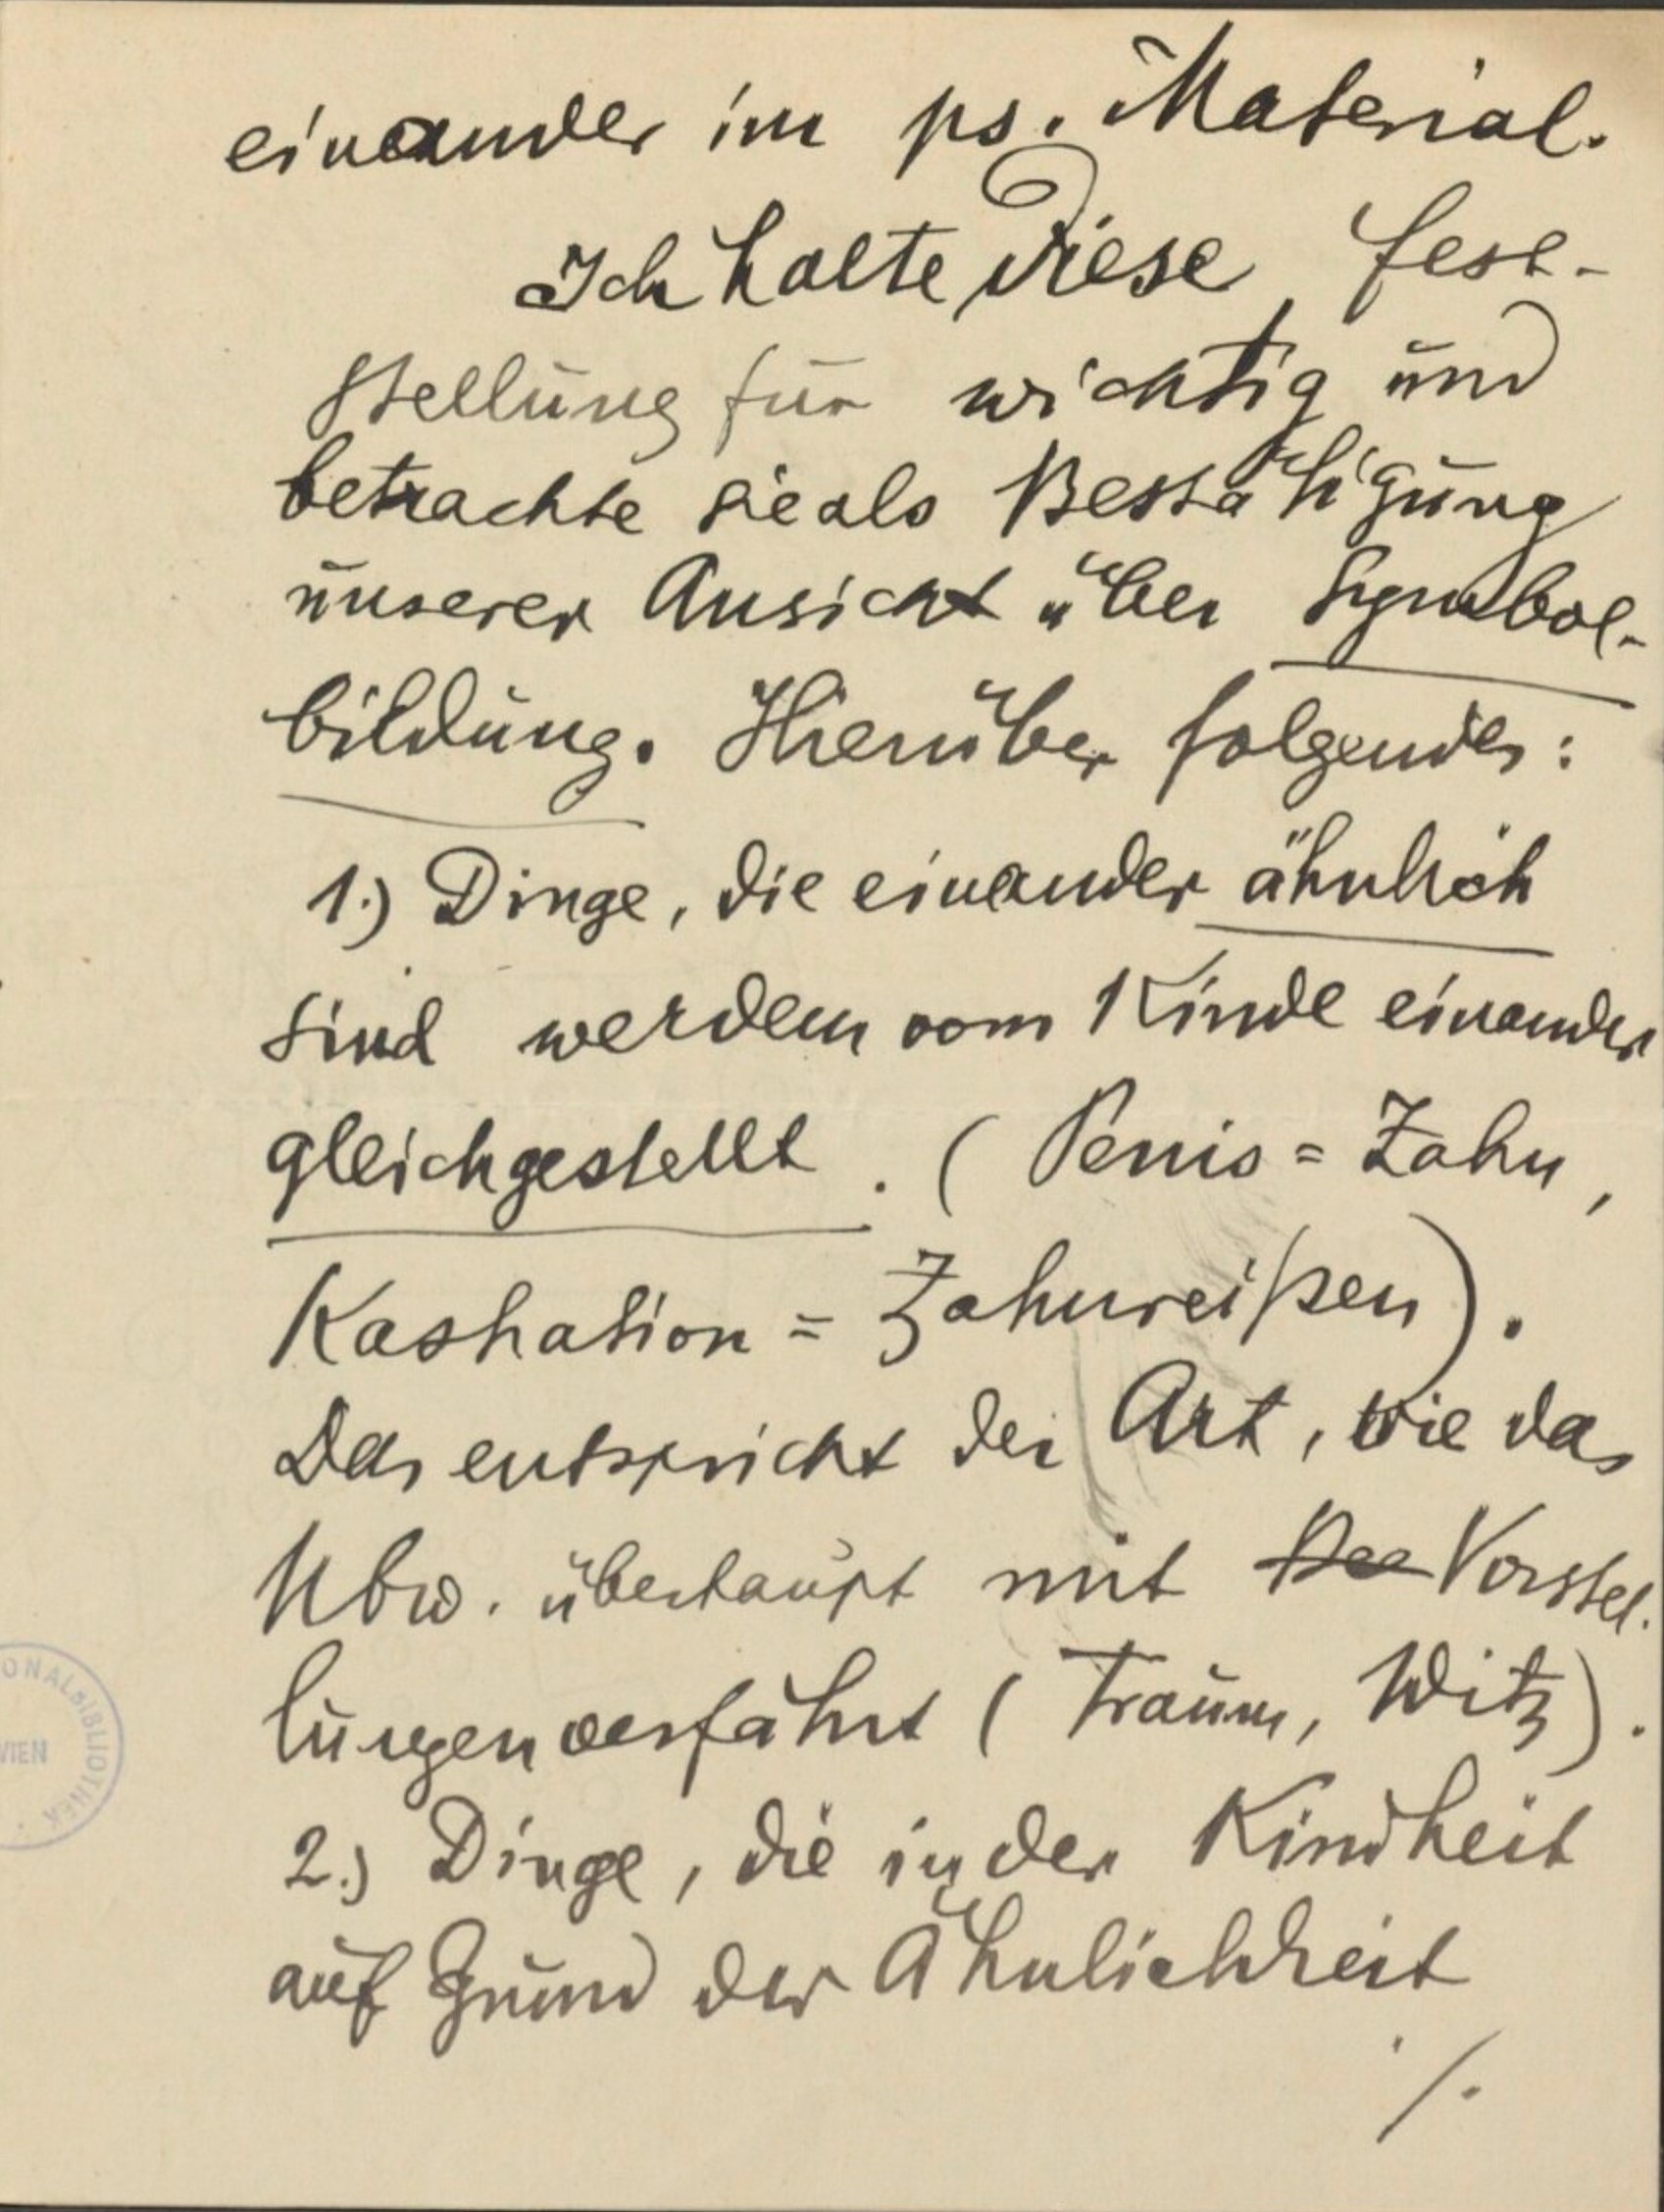 einander im ps. Material.
Ich halte diese Fest-
stellung für wichtig und
betrachte sie als Bestätigung
unserer Ansicht über Symbol-
bildung. Hierüber folgendes:
1.) Dinge, die einander ähnlich
sind werden vom Kinde einander
gleichgestellt. (Penis = Zahn,
Kastration = Zahnreißen).
Das entspricht der Art, wie das
Ubw. überhaupt mit Vorstel-
lungen verfährt (Traum, Witz).
2.) Dinge, die in der Kindheit
auf Grund der Ähnlichkeit
/.
ONALBIBLIOTHEK
WIEN